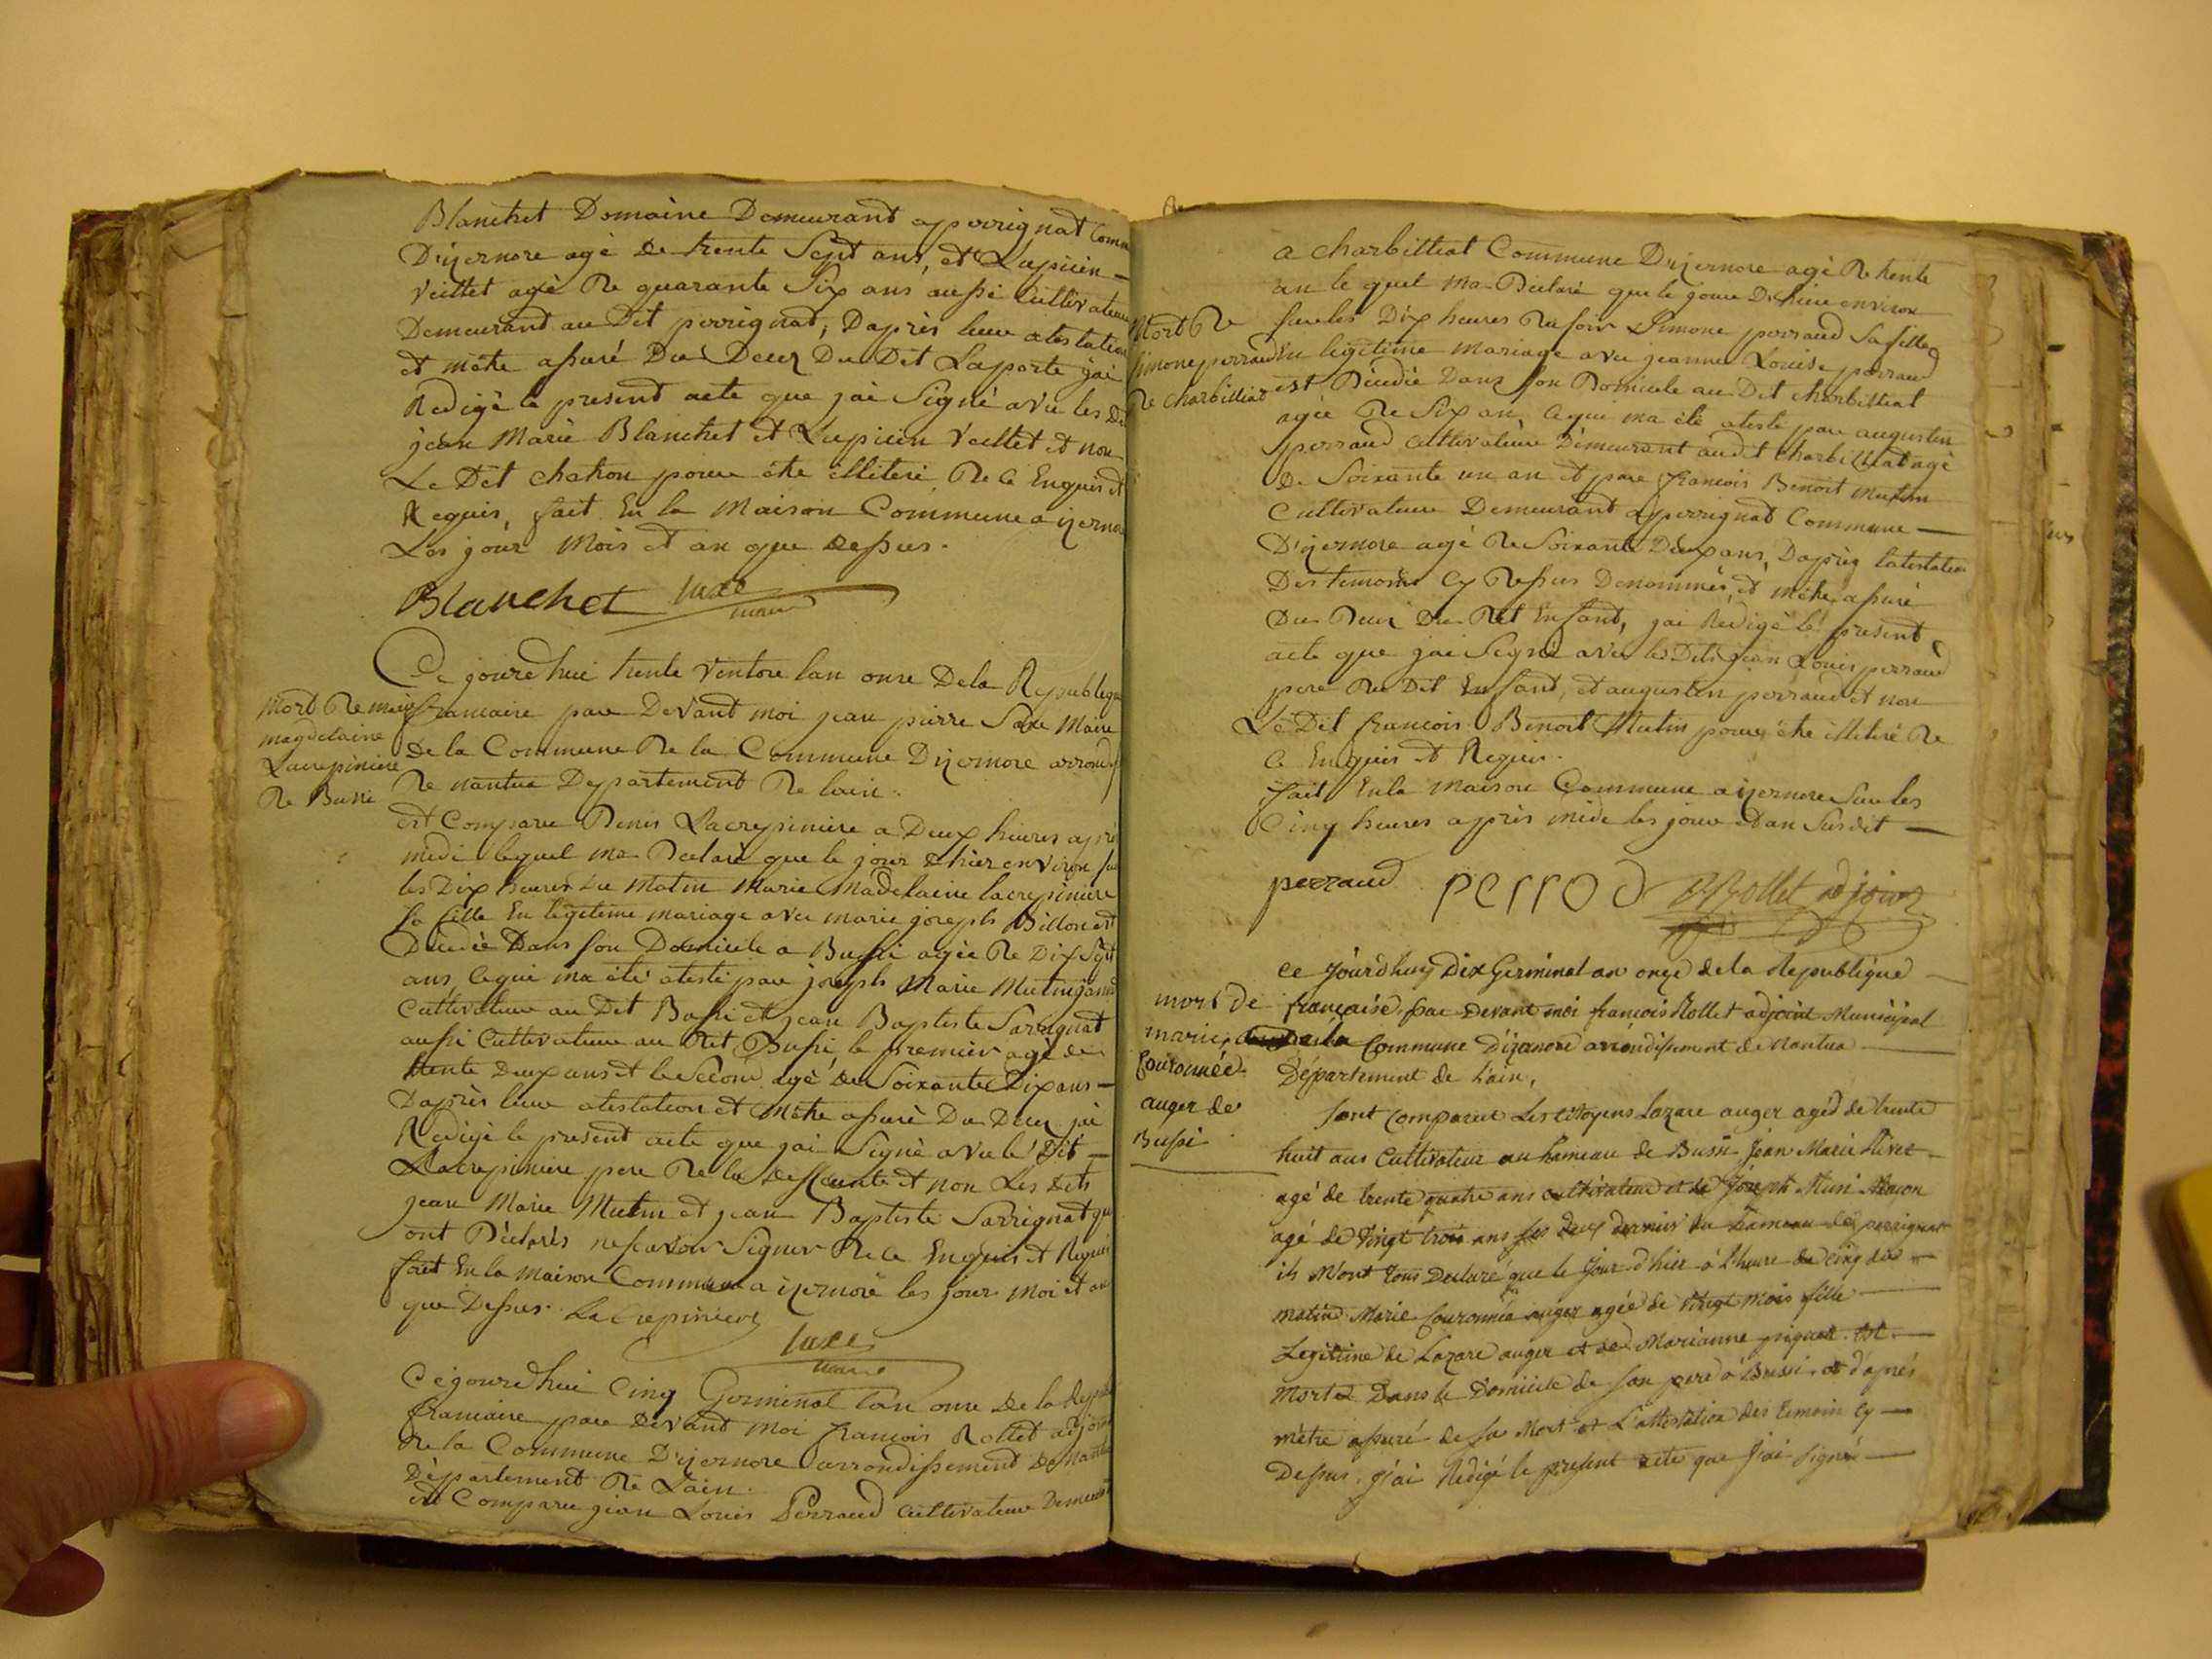 Blanchet Domaine Demeurant a perrignat Com
D'izernore agé de trente Sept ans, et Lupicin
veillet agé De quarante Six ans aussi Cultivateur
Demeurant au Dit perrignat, D'après leur atestation
et m'etre assuré Du Decez Du Dit Laporte j'ai
Redigé le present acte que j'ai Signé avec les D
jean Marie Blanchet et Lupicin veillet et non
Le Dit chatron pour être illiteré De ce Enquis et
Requis, fait En la Maison Commune a izernore
Les jour Mois et an que Dessus.
Blanchet
maire
Ce jourd'hui trente Ventose lan onze De la Republique
Mort De marie
magdelaine
Lacrepiniere
De Bussi
francaise par Devant moi jean pierre Maire
De la Commune De la Commune D'izernore arrond
De nantua Departement De lain.
est Comparu Denis Lacrepiniere a Deux heures aprè
midi lequel ma Declaré que le jour d'hier environ sur
les Dix heures Du Matin Marie Madelaine lacrepiniere
sa fille En legitime mariage avec marie joseph Billon est
Décedée Dans son Domicile a Bussi agée De Dix Sept
ans, ce qui ma été atesté par joseph Marie Mutin
Cultivateur au Dit Bussi et jean Baptiste Sarrignat
aussi Cultivateur au Dit Bussi, le premier agé de
trente Deux ans et le Second agé De Soixante Dix ans
D'après leur atestation et m'être assuré Du Decez j'ai
Redigé le present acte que j'ai Signé avec le Dit
Lacrepiniere pere De la Deffunte et non Les Dits
jean Marie Mutin et jean Baptiste Sarrignat qu
ont Déclarés ne savoir Signer De ce Enquis et Requis
fait En la maison Commune a izernore les jour moi et an
que Dessus. Lacrepiniere
maire
Ce jourd'hui Cinq Germinal lan onze De la Repu
francaise par Devant Moi francois Rollet adjoin
De la Commune D'izernore arrondissement De Nantua
Département De Lain.
est Comparu jean Louis Perraud Cultivateur Demeurant
a charbilliat Commune D'izernore agé De trente
an le quel ma Declaré que le jour D'hier environ
Mort De
simone perraud
De charbilliat
sur les Dix heures Du soir Simone perraud Sa fille
En legitime Mariage avec jeanne Louise perraud
est Décedée Dans son Domicile au Dit charbilliat
agée De Six an, ce qui ma été atesté par augustin
perraud cultivateur Demeurant audit charbilliat agé
De Soixante un an et par francois Benoit Mutin
Cultivateur Demeurant a perrignat Commune
D'izernore agé De Soixante Deux ans, D'après latestation
Des temoins Cy Dessus Denommés, et m'être assuré
Du Decez Du Dit Enfant, j'ai Redigé le present
acte que j'ai Signé avec les Dits jean Louis perraud
pere Du Dit Enfant, et augustin perraud et non
Le Dit francois Benoit Mutin pour être illiteré De
ce Enquis et Requis.
fait En la Maison Commune a izernore Sur les
Cinq heures après midi les jour et an Susdit
perraud PERROD Rollet adjoint
ce jourd'huy Dix Germinal an onze de la Republique
mort de
marie
Couronnée
auger de
Bussi
française, par devant moi françois Rollet adjoint Municipal
de la Commune D'izernore arrondissement de Nantua
Département de L'ain,
sont comparut Les citoyens Lazare auger agéd de trente
huit ans Cultivateur au hameau de Bussi Jean Marie
agé de trente quatre ans cultivateur et de Joseph
agé de Vingt trois ans les deux dernier du hameau de perrignat
ils m'ont tous Declaré que le jour d'hier à L'heure de cinq du
matin Marie Couronnée auger agée de Vingt mois fille
Legitime de Lazare auger et de Marianne est
morte Dans le Domicile de son pere à Bussi, et d'après
m'être assuré de sa Mort et L'attestation des temoin Cy
Dessus, j'ai Redigé le present acte que j'ai signé